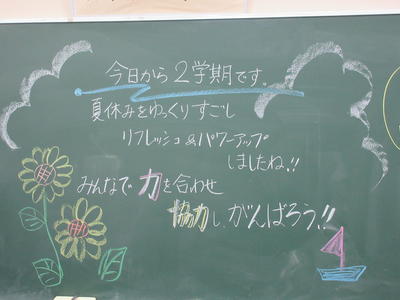 今日から2学期です。
夏休みをゆっくりすごし
リフレッシュ&パワーアップ
しましたね!!
みんなで力を合わせ
協力し、がんばろう!!